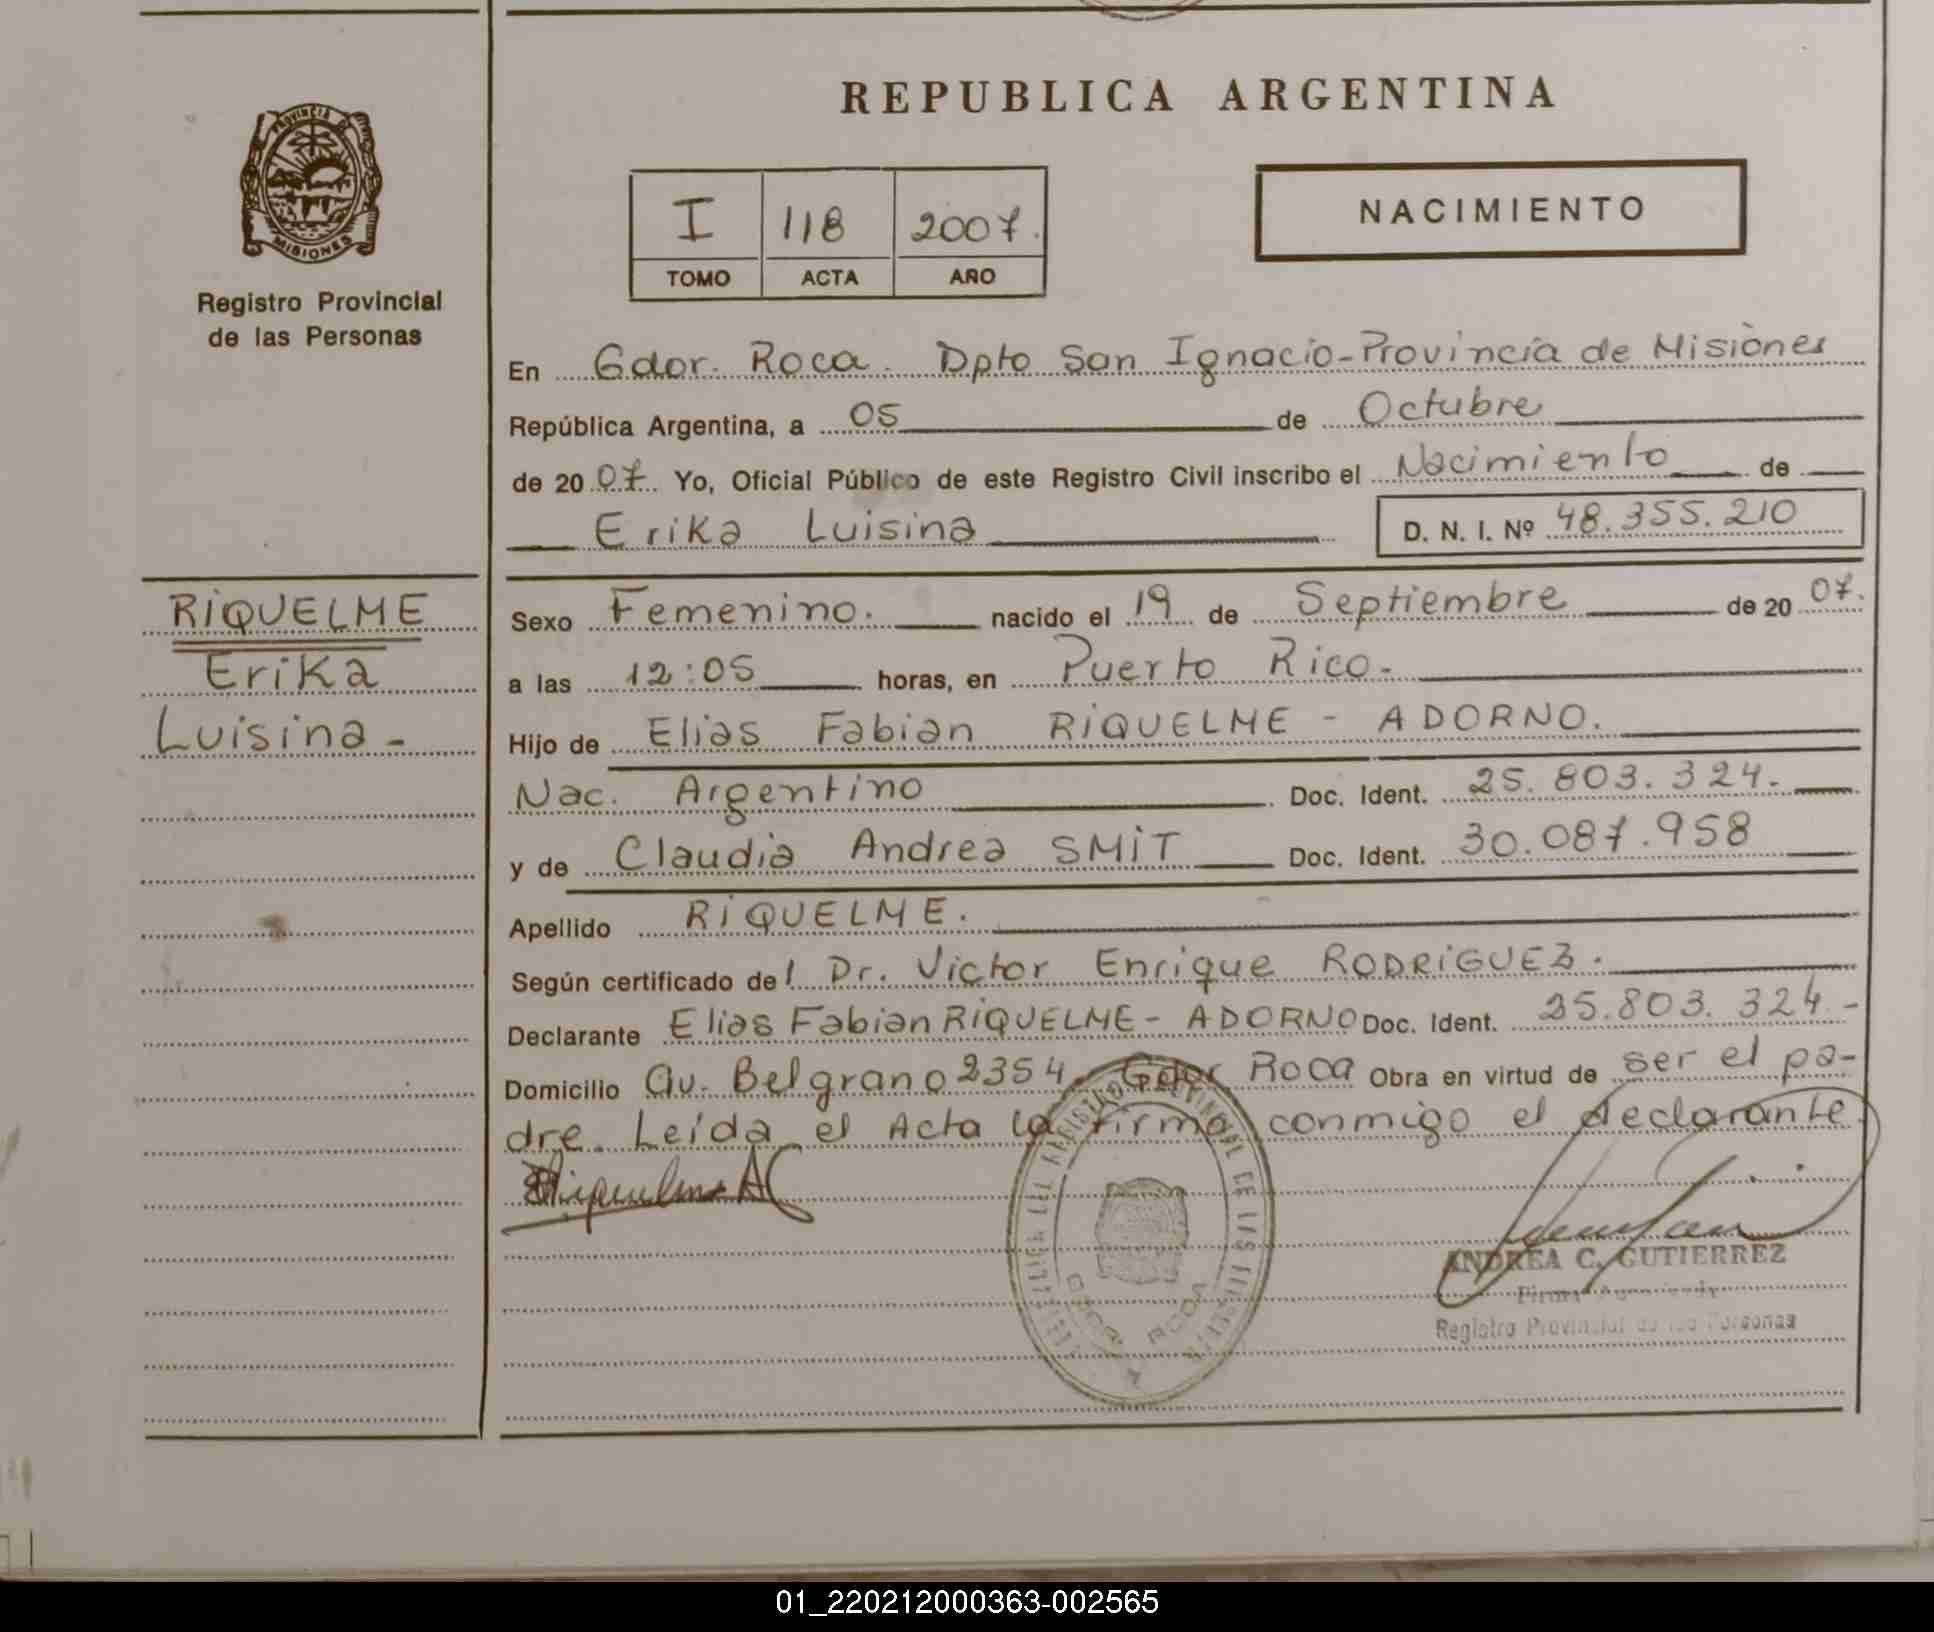 REPUBLICA ARGENTINA
PROVINCIA DE
MISIONES
Registro Provincial
de las Personas
I 118 2007.
TOMO ACTA AÑO
NACIMIENTO
En Gdor. Roca. Dpto San Ignacio-Provincia de Misiones
República Argentina, a 05 de Octubre
de 20 07. Yo, Oficial Público de este Registro Civil inscribo el Nacimiento de
Erika Luisina D. N. I. Nº 48.355.210
RIQUELME
Erika
Luisina-
Sexo Femenino. nacido el 19 de Septiembre de 20 07.
a las 12:05 horas, en Puerto Rico.
Hijo de Elias Fabian RIQUELME - ADORNO.
Nac. Argentino Doc. Ident. 25.803.324.
y de Claudia Andrea SMIT Doc. Ident. 30.087.958
Apellido RIQUELME.
Según certificado del Dr. Victor Enrique RODRIGUEZ.
Declarante Elias Fabian RIQUELME- ADORNO Doc. Ident. 25.803.324.-
Domicilio av. Belgrano 2354. Gdor Roca Obra en virtud de ser el pa-
dre. Leída el Acta la firma conmigo el declarante.
ANDREA C. GUTIERREZ
Registro Provincial de las Personas
GDOR. ROCA
01_220212000363-002565